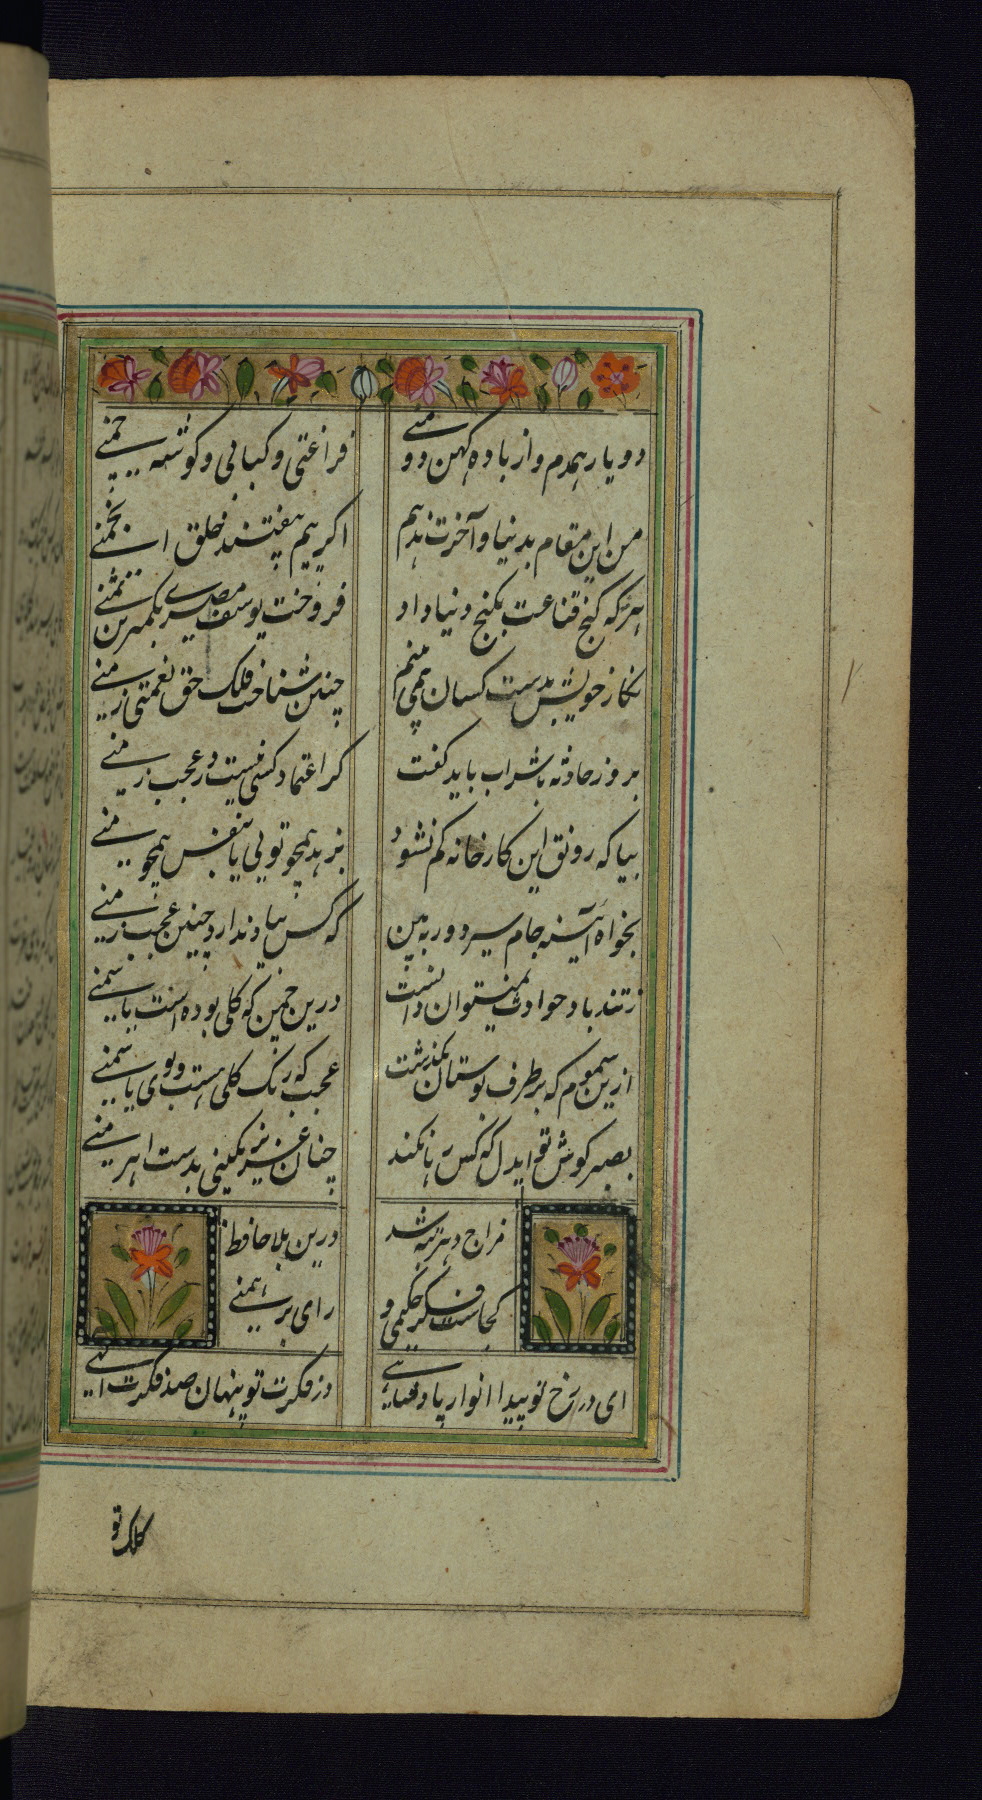 دو یار همدم و از باده کهن دو منے فراغتی و کبابی و کوشه چمنے
من این مقام بدنیا و آخرت ندهم اکر پیم بیفتند خلق انجمنے
هر که کنج قناعت بکنج دنیا داد فروخت یوسف مصرے بکمترین ثمنے
نکار خویش بدست کسان همی بینم چنین شناخت فلک حق نعمتی ز منے
بروز حادثه با شراب باید کفت کر اعتماد کسی نیست در عجب ز منے
بیا که رونق این کارخانه کم نشود بزهد همچو تویی یا بفسق همچو منے
بخواه آینه جام سیر دور به بین که کس بیاد ندارد چنین عجب ز منے
ز تند باد حوادث نمیتوان دانست درین چمن که کلی بوده است یا سمنے
ازین سموم که بر طرف بوستان بکذشت عجب که رنک کلی هست و بوی یاسمنے
بصبر کوش تو ایدل که کس رها نکند چنان عزیز نکینی بدست اهرمنے
مزاج دهر تبه شد درین بلا حافظ
کجاست فکر حکیمی و رای برهمنے
ای در رخ تو پیدا انوار پادشاهے در فکرت تو پنهان صد فکرت الهے
کلک تو